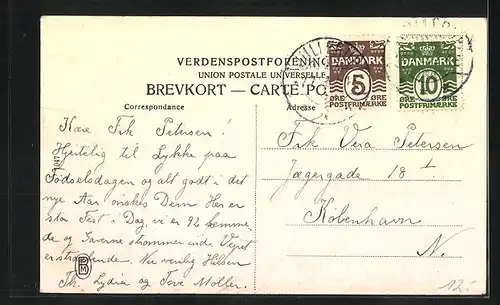 VERDENSPOSTFORENINGEN
UNION POSTALE UNIVERSELLE
BREVKORT — CARTE PO
Correspondance
Adresse
DANMARK
5
ØRE ØRE
POSTFRIMÆRKE
DANMARK
10
ØRE ØRE
POSTFRIMÆRKE
Kære Frk Petersen!
Hjertelig til Lykke paa
Fødselsdagen og alt godt i det
nye Aar ønskes Dem Her er
stor Fest i Dag, vi er 92 fremme
de og Gaverne strømmer ind, Vejret
er straalende. Nu venlig Hilsen
Th. Lydia og Tove Møller.
Frk Vera Petersen
Jægergade 18
København
N.
12.-